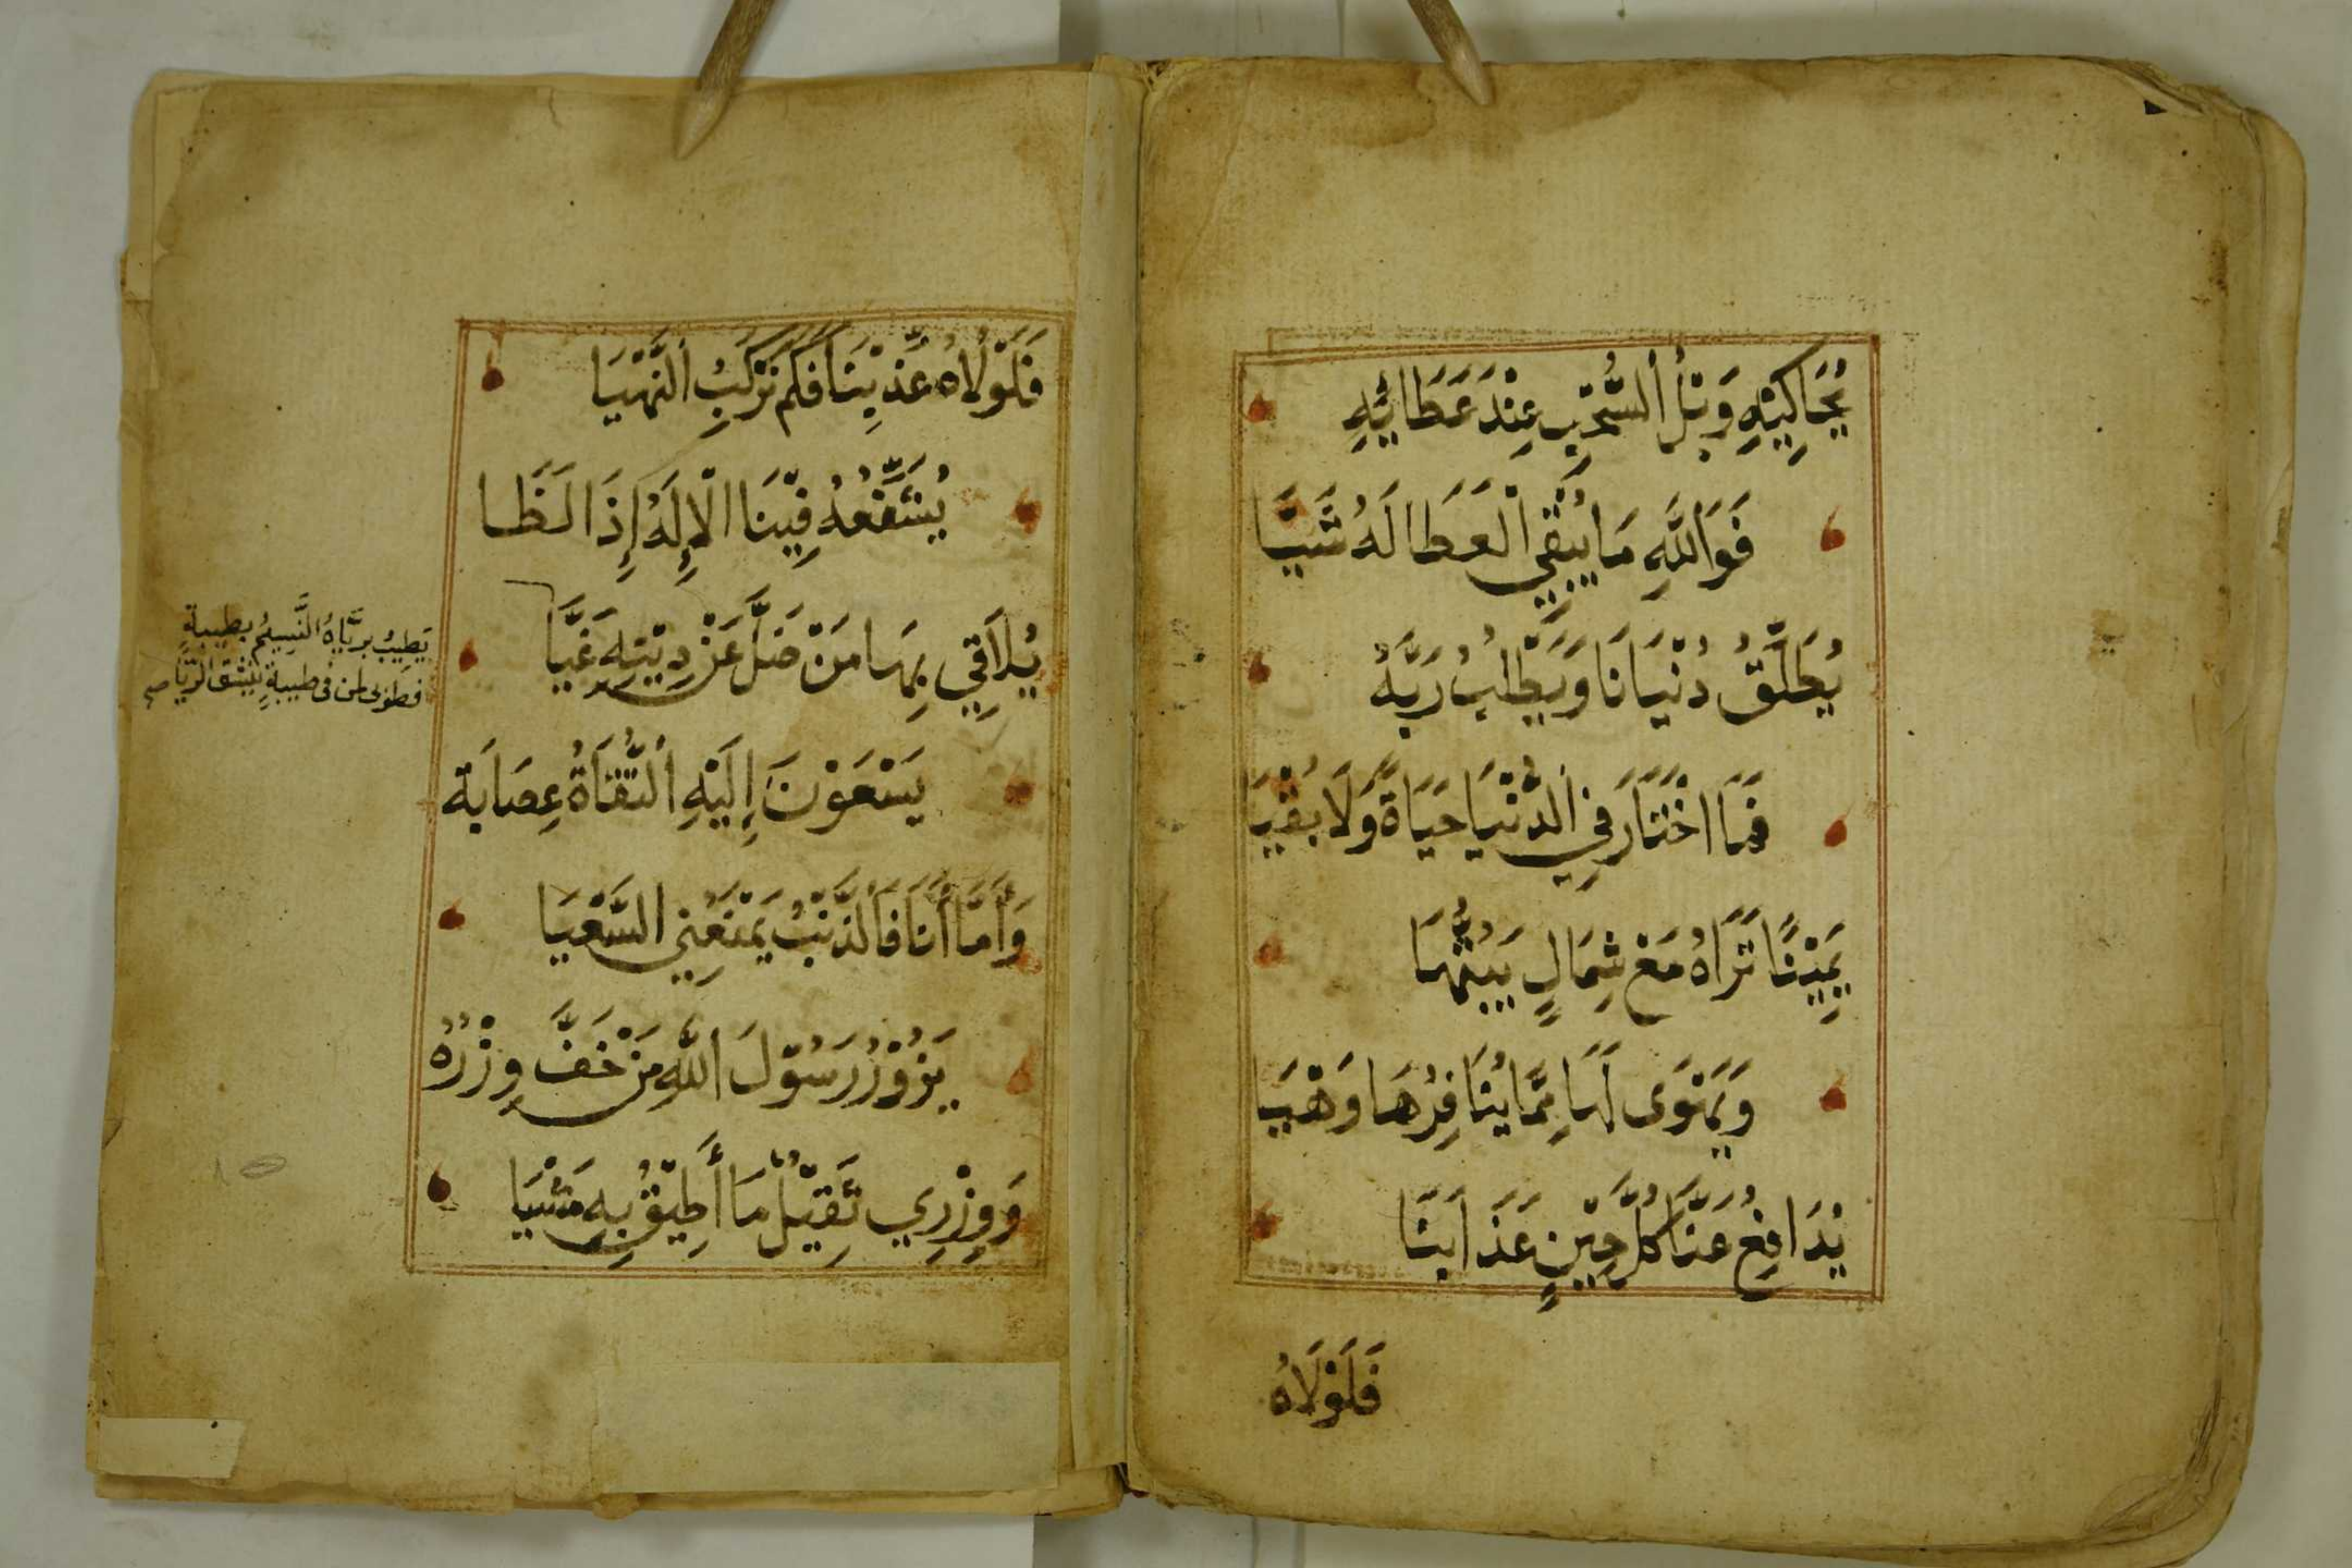 يُحَاكِيْهِ وَبْلُ السُّحْبِ عِنْدَ عَطَائِهِ
فَوَاللَّهِ مَا يُبْقِي الْعَطَا لَهُ شَيَّا
يُطَلِّقُ دُنْيَانَا وَيَطْلُبُ رَبَّهُ
فَمَا اخْتَارَ فِي الدُّنْيَا حَيَاةً وَلَا بُقْيَا
يَمِيْنًا تَرَاهُ مَعْ شِمَالٍ يَبُثُّهَا
وَيَمْنَوَى لَهَا مِمَّا يُنَافِرُهَا وَهْيَا
يُدَافِعُ عَنَّا كُلَّ حِيْنٍ عَذَابَنَا
فَلَوْلَاهُ
فَلَوْلَاهُ عُذِّبْنَا فَكَم نَرْكَبُ النَّهْيَا
يُشَفِّعُهُ فِيْنَا الْإِلَهُ إِذَا لَظَا
يُلَاقِي بِهَا مَنْ ضَلَّ عَنْ دِيْنِهِ غَيَّا
يَسْعَوْنَ إِلَيْهِ التُّقَاةُ عِصَابَة
وَأَمَّا أَنَا فَالذَّنْبُ يَمْنَعُنِي السَّعْيَا
يَزُوْرُ رَسُوْلَ اللَّهِ مَنْ خَفَّ وِزْرُهُ
وَوِزْرِي ثَقِيْلٌ مَا أُطِيْقُ بِهِ مَشْيَا
يَطِيْبُ بِرَيَّاهُ النَّسِيْمُ بطَيبةٍ
فطوبى لمن فى طيبةٍ ينشق الريّا صح